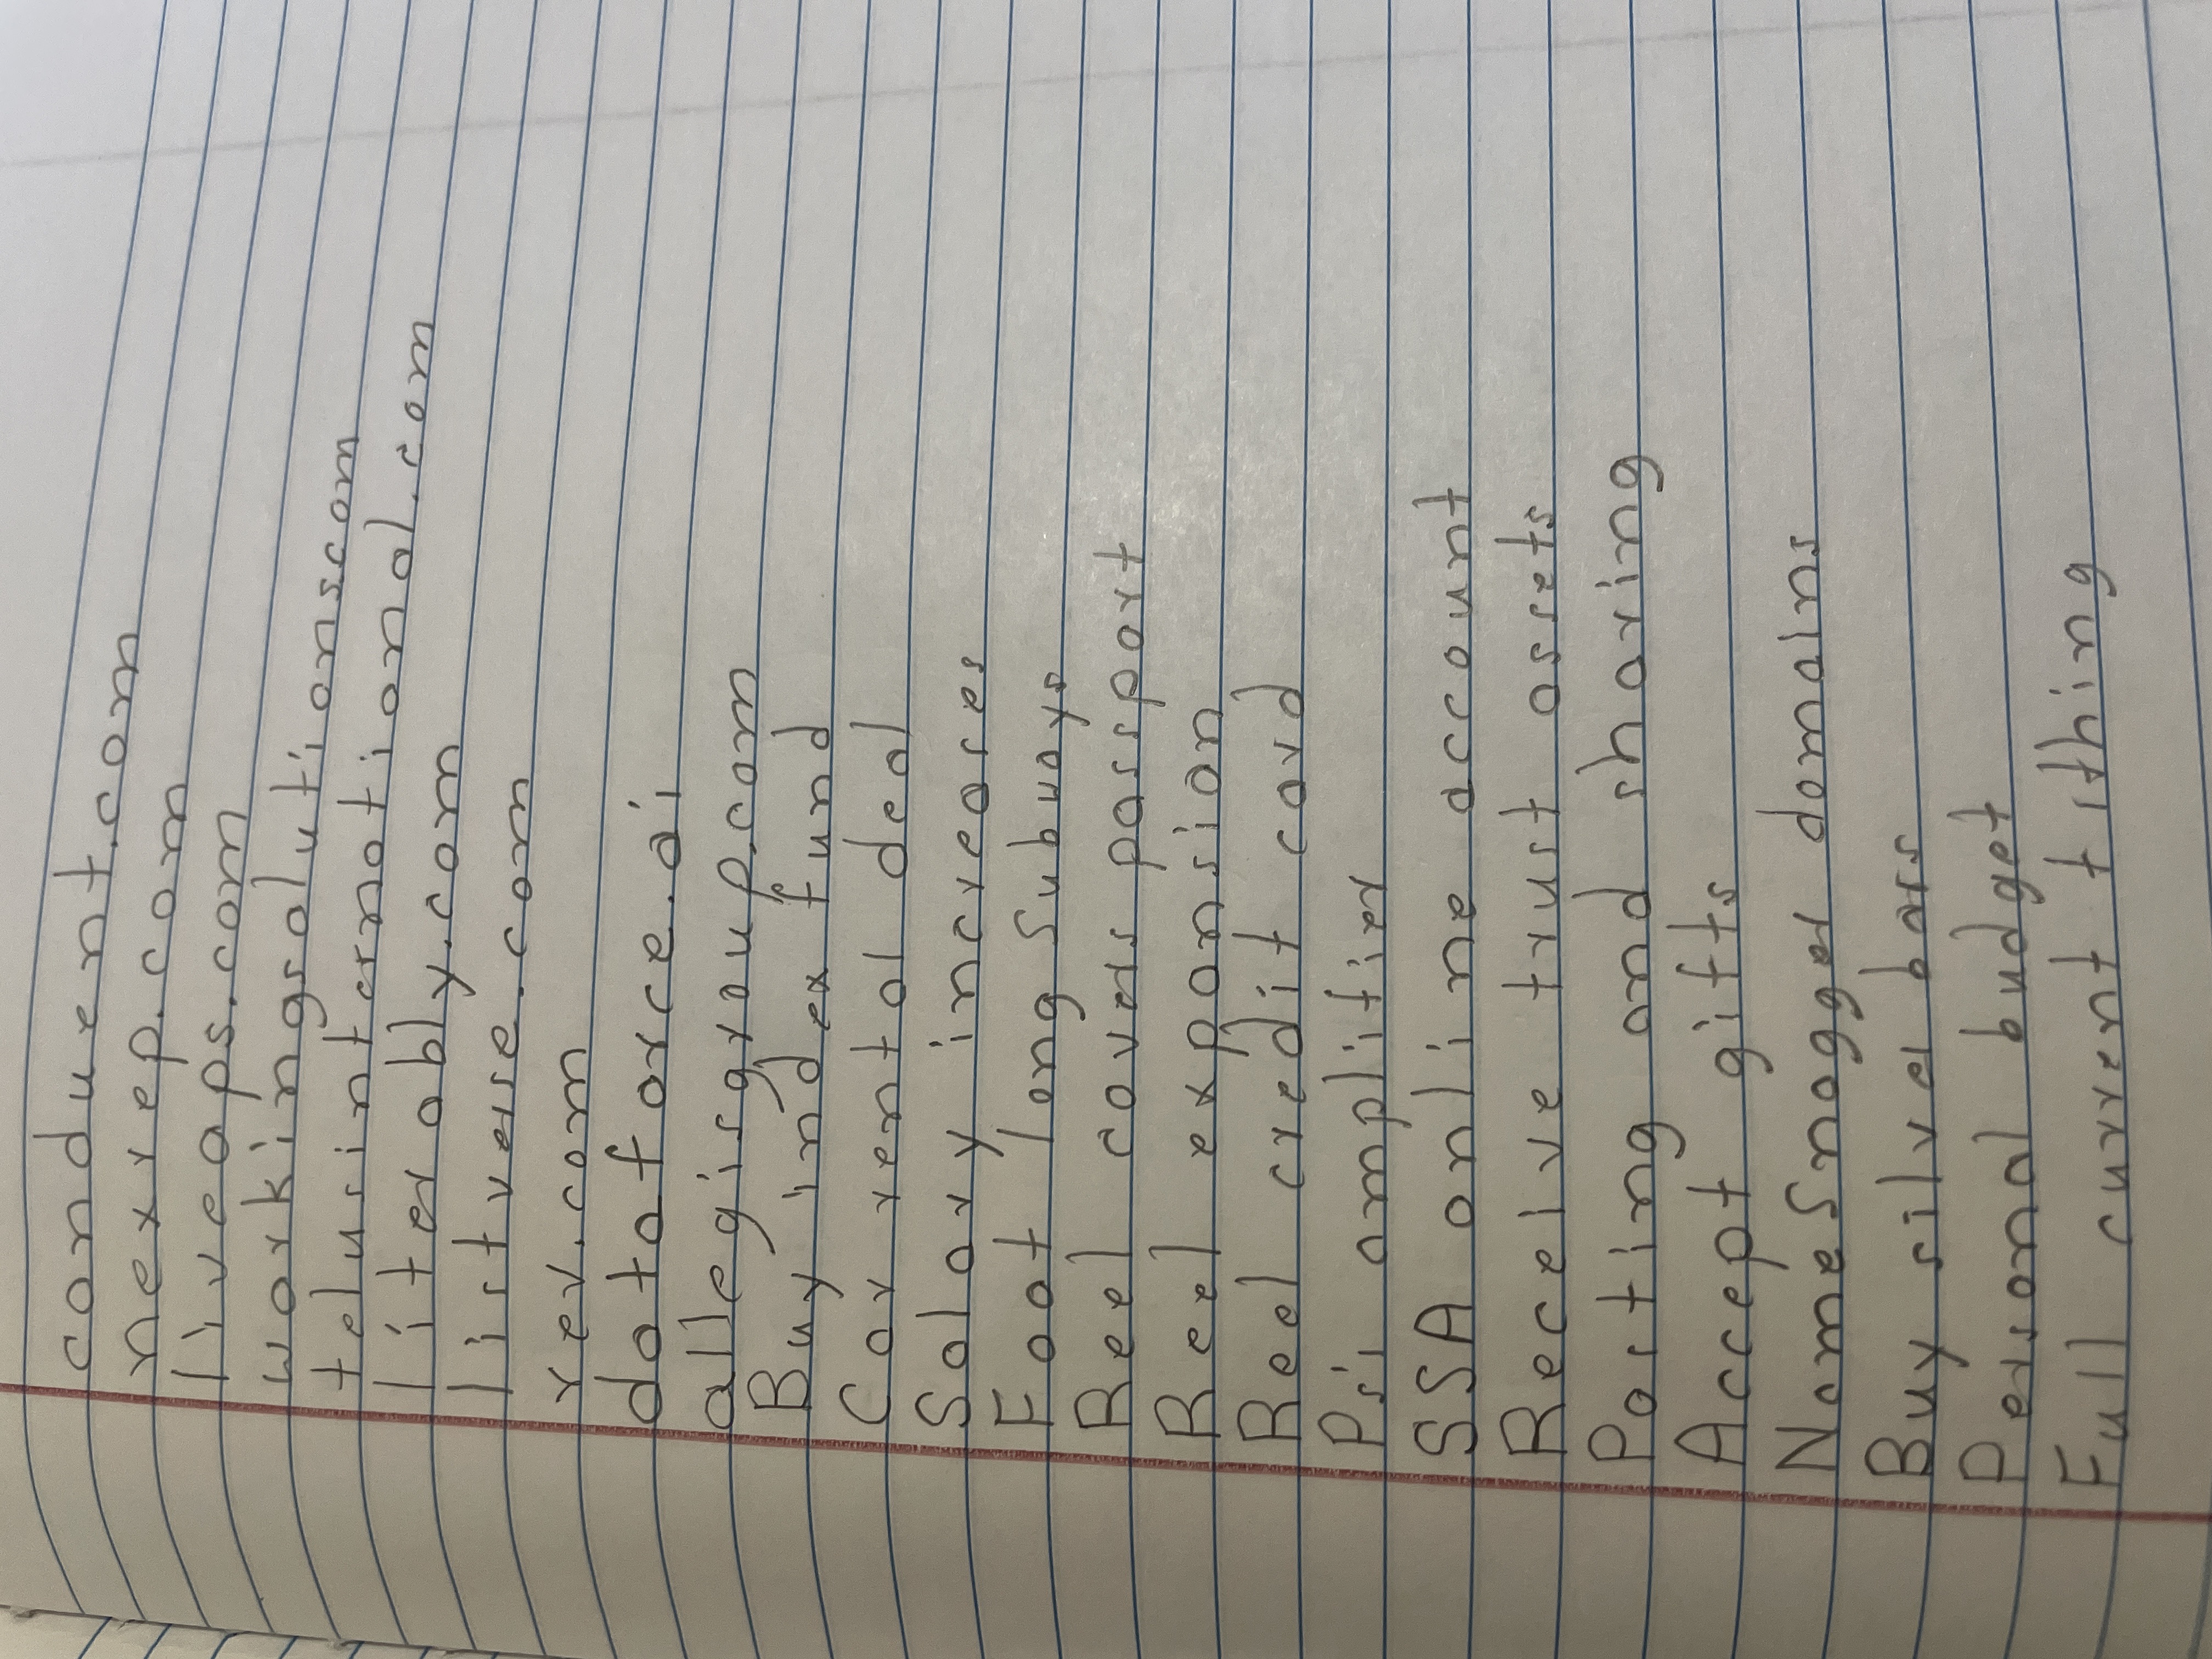 conduent.com
nexrep.com
liveops.com
workingsolutions.com
telusinternational.com
literably.com
listverse.com
rev.com
dataforce.ai
allegisgroup.com
Buy index fund
Car rental del
Salary increases
Foot long Subways
Reel covers passport
Reel expansion
Reel credit card
Psi amplifier
SSA online account
Receive trust assets
Posting and sharing
Accept gifts
NameSnagger domains
Buy silver bars
Personal budget
Full current tifting